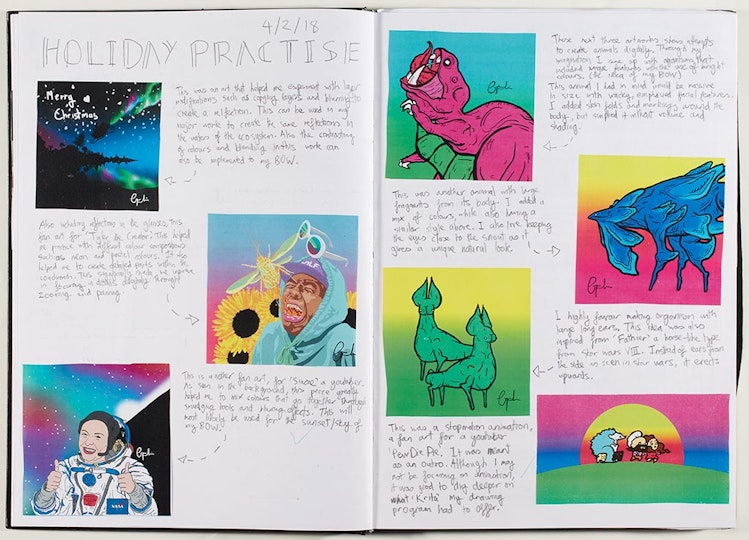 4/2/18
HOLIDAY PRACTISE
Merry
Christmas
This was an art that helped me experiment with layer
modifications such as copying layers and blurring to
create a reflection. This can be used in my
major work to create the same reflections in
the waters of the ecosystem. Also the contrasting
of colours and blending in this work can
also be implemented to my BOW.
Also including reflections in the glasses, this
fan art for 'Tyler the Creator'. This helped
me practise with different colour compositions
such as neon and pastel colours. It also
helped me to create detailed parts within the
composition. This significantly made me improve
in focusing in details digitally through
zooming and panning.
This is another fan art, for a youtuber.
As seen in the background, this piece greatly
helped me to mix colours that go together through
smudging tools and blurring effects. This will
most likely be used for the sunset/sky of
my BOW.
NASA
These next three artworks show attempts
to create animals digitally. Through my
imagination I came up with organisms that
included large features with the use of bright
colours. (the idea of my BOW)
This animal I had in mind would be massive
in size with wacky, emphasised facial features.
I added skin folds and markings around the
body, but simplified it without volume and
shading.
This was another animal with large
fragments from its body. I added a
mix of colours, while also having a
similar style above. I also love keeping
the eyes close to the snout as it
gives a unique natural look.
I highly favour making organism with
large long ears. This idea was also
inspired from 'Fathier' a horse-like type
from star wars VIII. Instead of ears from
the side as seen in star wars, it erects
upwards.
This was a stopmotion animation,
a fan art for a youtuber
PewDiePie. It was meant
as an outro. Although I may
not be focusing on animation,
it was good to dig deeper on
what 'Krita' my drawing
program had to offer.